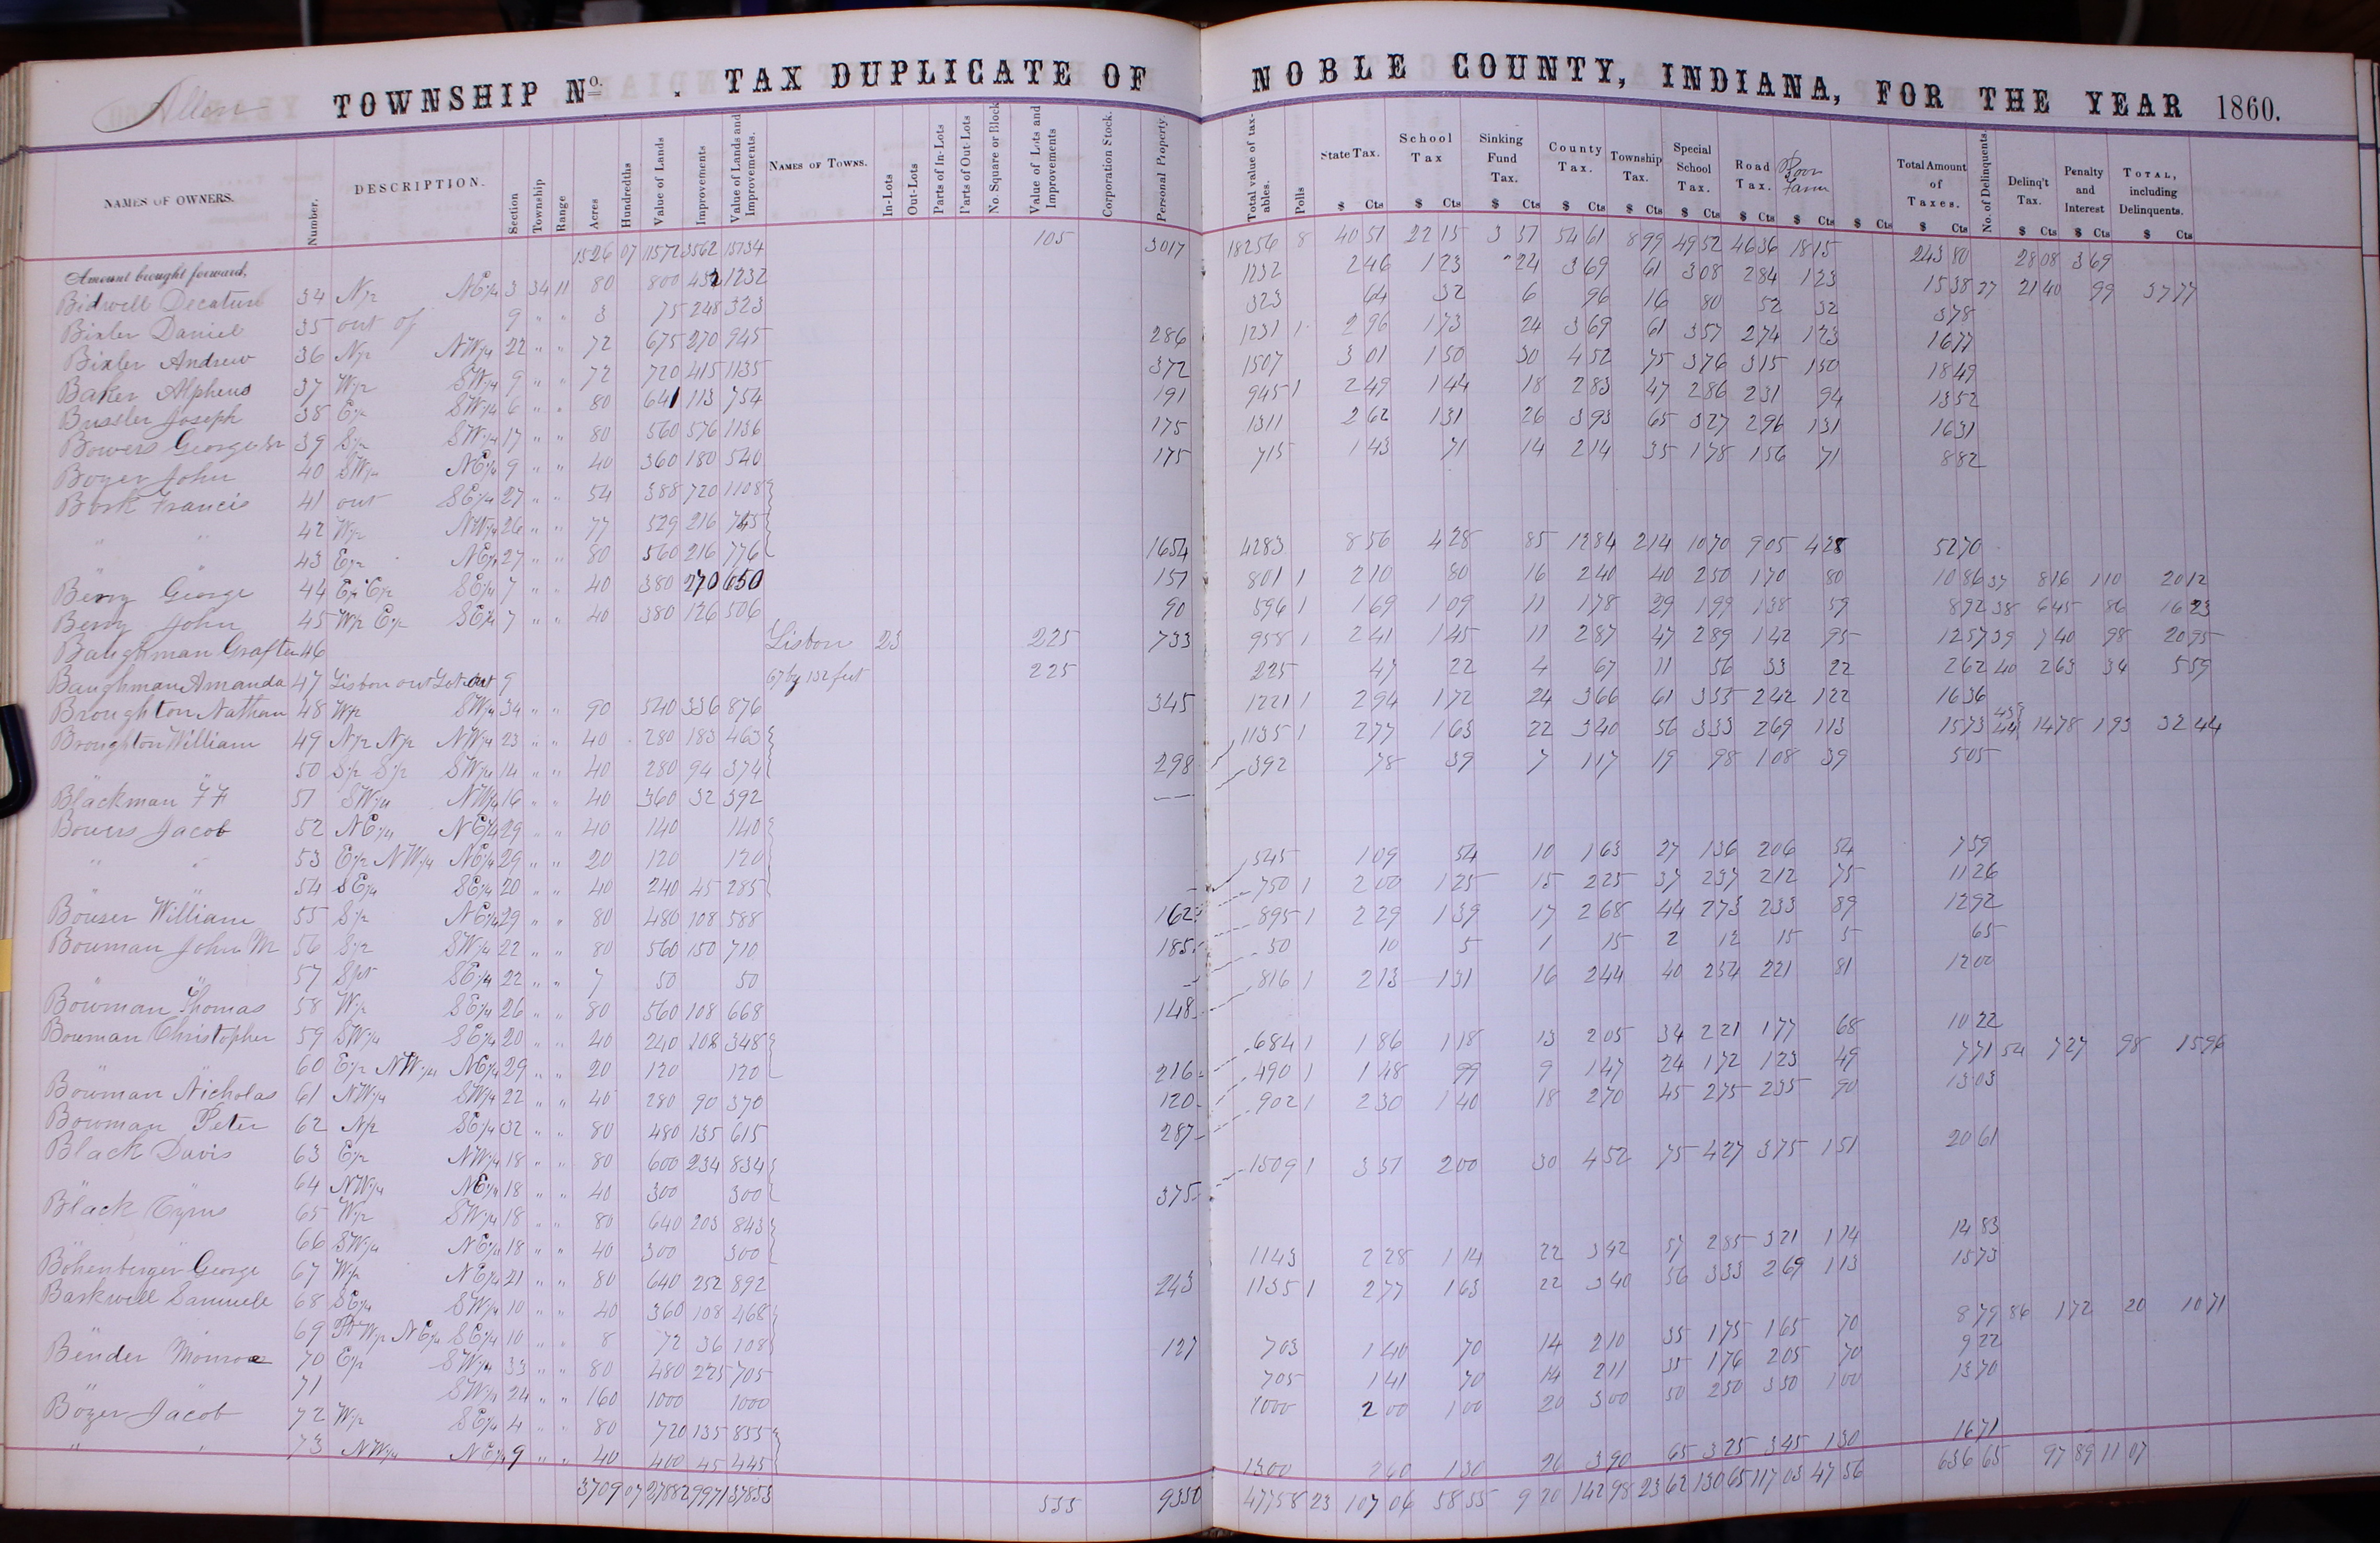 Allen TOWNSHIP No. . TAX DUPLICATE OF NOBLE COUNTY, INDIANA, FOR THE YEAR 1860.
NAMES OF OWNERS. Number. DESCRIPTION. Section Township Range Acres Hundredths Value of Lands Improvements Value of Lands and Improvements. NAMES OF TOWNS. In-Lots Out-Lots Parts of In-Lots Parts of Out-Lots No. Square or Block Value of Lots and Improvements Corporation Stock. Personal Property. Total value of taxables. Polls State Tax. School Tax Sinking Fund Tax. County Tax. Township Tax. Special School Tax. Road Tax. Poor Farm Total Amount of Taxes. No. of Delinquents. Delinq't Tax. Penalty and Interest TOTAL, including Delinquents.
$ Cts $ Cts $ Cts $ Cts $ Cts $ Cts $ Cts $ Cts $ Cts $ Cts $ Cts $ Cts $ Cts
Amount brought forward, 1526 07 11572 3562 15134 105 3017 18256 8 40 51 22 15 3 57 54 61 8 99 49 52 46 36 18 15 243 80 28 08 3 69
Bidwell Decatur 34 N½ NE¼ 3 34 11 80 800 432 1232 1232 2 46 1 23 24 3 69 61 3 08 2 84 1 23 15 38 27 21 40 99 37 77
Bixler Daniel 35 out of 9 " " 3 75 248 323 323 64 32 6 96 16 80 52 32 3 78
Bixler Andrew 36 N½ NW¼ 22 " " 72 675 270 945 286 1231 1 2 96 1 73 24 3 69 61 3 57 2 74 1 23 16 77
Baker Alpheus 37 W½ SW¼ 9 " " 72 720 415 1135 372 1507 3 01 1 50 30 4 52 75 3 76 3 15 1 50 18 49
Bussler Joseph 38 E½ SW¼ 6 " " 80 641 113 754 191 945 1 2 49 1 44 18 2 83 47 2 86 2 31 94 13 52
Bowers George Sr 39 S½ SW¼ 17 " " 80 560 576 1136 175 1311 2 62 1 31 26 3 93 65 3 27 2 96 1 31 16 31
Boyer John 40 SW¼ NE¼ 9 " " 40 360 180 540 175 715 1 43 71 14 2 14 35 1 78 1 56 71 8 82
Bork Francis 41 out SE¼ 27 " " 54 388 720 1108
" " 42 W½ NW¼ 26 " " 77 529 216 745
" 43 E½ NE¼ 27 " " 80 560 216 776 1654 4283 8 56 4 28 85 12 84 2 14 10 70 9 05 4 28 52 70
Berry George 44 E½ E½ SE¼ 7 " " 40 380 270 650 151 801 1 2 10 80 16 2 40 40 2 50 1 70 80 10 86 37 8 16 1 10 20 12
Berry John 45 W½ E½ SE¼ 7 " " 40 380 126 506 90 596 1 1 69 1 09 11 1 78 29 1 99 1 38 59 8 92 38 6 45 86 16 23
Baughman Grafton 46 Lisbon 23 225 733 958 1 2 41 1 45 11 2 87 47 2 89 1 42 95 12 57 39 7 40 98 20 95
Baughman Amanda 47 Lisbon out Lot out 9 67 by 132 feet 225 225 47 22 4 67 11 56 33 22 2 62 40 2 63 34 5 59
Broughton Nathan 48 W½ SW¼ 34 " " 90 540 336 876 345 1221 1 2 94 1 72 24 3 66 61 3 55 2 42 1 22 16 36
Broughton William 49 N½ N½ NW¼ 23 " " 40 280 183 463 1135 1 2 77 1 63 22 3 40 56 3 33 2 69 1 13 15 73 43 44 14 78 1 93 32 44
" 50 S½ S½ SW¼ 14 " " 40 280 94 374 298
Blackman F F 51 SW¼ NW¼ 16 " " 40 360 32 392 392 78 39 7 1 17 19 98 1 08 39 5 05
Bowers Jacob 52 NE¼ NE¼ 29 " " 40 140 140
" " 53 E½ NW¼ NE¼ 29 " " 20 120 120
" 54 SE¼ SE¼ 20 " " 40 240 45 285 545 1 09 54 10 1 63 27 1 36 2 06 54 7 59
Bouser William 55 S½ NE¼ 29 " " 80 480 108 588 162 750 1 2 00 1 25 15 2 25 37 2 37 2 12 75 11 26
Bowman John M 56 S½ SW¼ 22 " " 80 560 150 710 185 895 1 2 29 1 39 17 2 68 44 2 73 2 33 89 12 92
" " 57 Spt SE¼ 22 " " 7 50 50 50 10 5 1 15 2 12 15 5 65
Bowman Thomas 58 W½ SE¼ 26 " " 80 560 108 668 148 816 1 2 13 1 31 16 2 44 40 2 54 2 21 81 12 00
Bowman Christopher 59 SW¼ SE¼ 20 " " 40 240 108 348
" 60 E½ NW¼ NE¼ 29 " " 20 120 120 216 684 1 1 86 1 18 13 2 05 34 2 21 1 77 68 10 22
Bowman Nicholas 61 NW¼ SW¼ 22 " " 40 280 90 370 120 490 1 1 48 99 9 1 47 24 1 72 1 23 49 7 71 54 7 27 98 15 96
Bowman Peter 62 N½ SE¼ 32 " " 80 480 135 615 287 902 1 2 30 1 40 18 2 70 45 2 75 2 35 90 13 03
Black Davis 63 E½ NW¼ 18 " " 80 600 234 834
" 64 NW¼ NE¼ 18 " " 40 300 300 375 1509 1 3 51 2 00 30 4 52 75 4 27 3 75 1 51 20 61
Black Cyrus 65 W½ SW¼ 18 " " 80 640 203 843
" 66 SW¼ NE¼ 18 " " 40 300 300 1143 2 28 1 14 22 3 42 57 2 85 3 21 1 14 14 83
Bohenberger George 67 W½ NE¼ 21 " " 80 640 252 892 243 1135 1 2 77 1 63 22 3 40 56 3 33 2 69 1 13 15 73
Baskwell Samuell 68 SE¼ SW¼ 10 " " 40 360 108 468
" 69 Pt W½ NE¼ SE¼ 10 " " 8 72 36 108 127 703 1 40 70 14 2 10 35 1 75 1 65 70 8 79 86 1 72 20 10 71
Bender Monroe 70 E½ SW¼ 33 " " 80 480 225 705 705 1 41 70 14 2 11 35 1 76 2 05 70 9 22
" " 71 SW¼ 24 " " 160 1000 1000 1000 2 00 1 00 20 3 00 50 2 50 3 50 1 00 13 70
Bozer Jacob 72 W½ SE¼ 4 " " 80 720 135 855
" " 73 NW¼ NE¼ 9 " " 40 400 45 445 1300 2 60 1 30 26 3 90 65 3 25 3 45 1 30 16 71
3709 07 27882 9971 37853 555 9350 47758 23 107 06 58 55 9 20 142 98 23 62 130 65 117 03 47 56 636 65 97 89 11 07